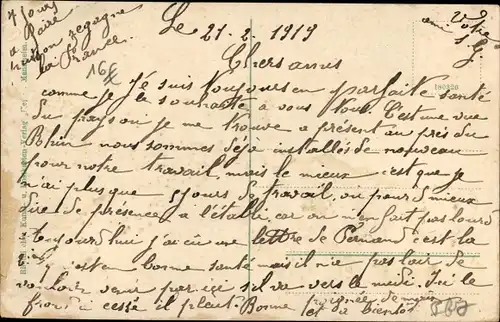 Le 21-2-1919
Chers amis
comme je Je suis toujours en parfaite santé
je le souhaite a vous tous. C'est une vue
du pays ou je me trouve a présent au près du
Rhin nous sommes deja installés de nouveau
pour notre travail, mais le mieux c'est que je
n'ai plus que 5 jours de travail, ou pour mieux
dire de présence a l'établi, car on n'en fait pas lourd
aujourd'hui j'ai eu une lettre de Fernand c'est la
il est en bonne santé mais il n'a pas l'air de
vouloir venir par ici il va vers le midi. Ici le
froid a cessé il pleut. Bonne poignée de main
et a bientôt
Votre
ami
L G.
7 jours
a faire
regagne
la France.
180320